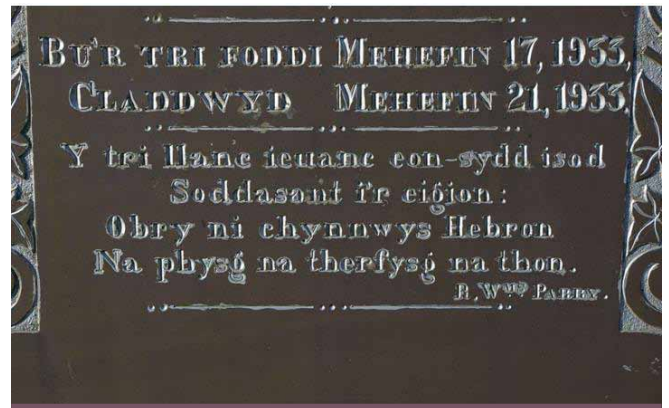 BU'R TRI FODDI MEHEFIN 17, 1933,
CLADDWYD MEHEFIN 21, 1933,
Y tri llanc ieuanc eon-sydd isod
Soddasant i'r eigion:
Obry ni chynnwys Hebron
Na physg na therfysg na thon.
R. Wms PARRY.